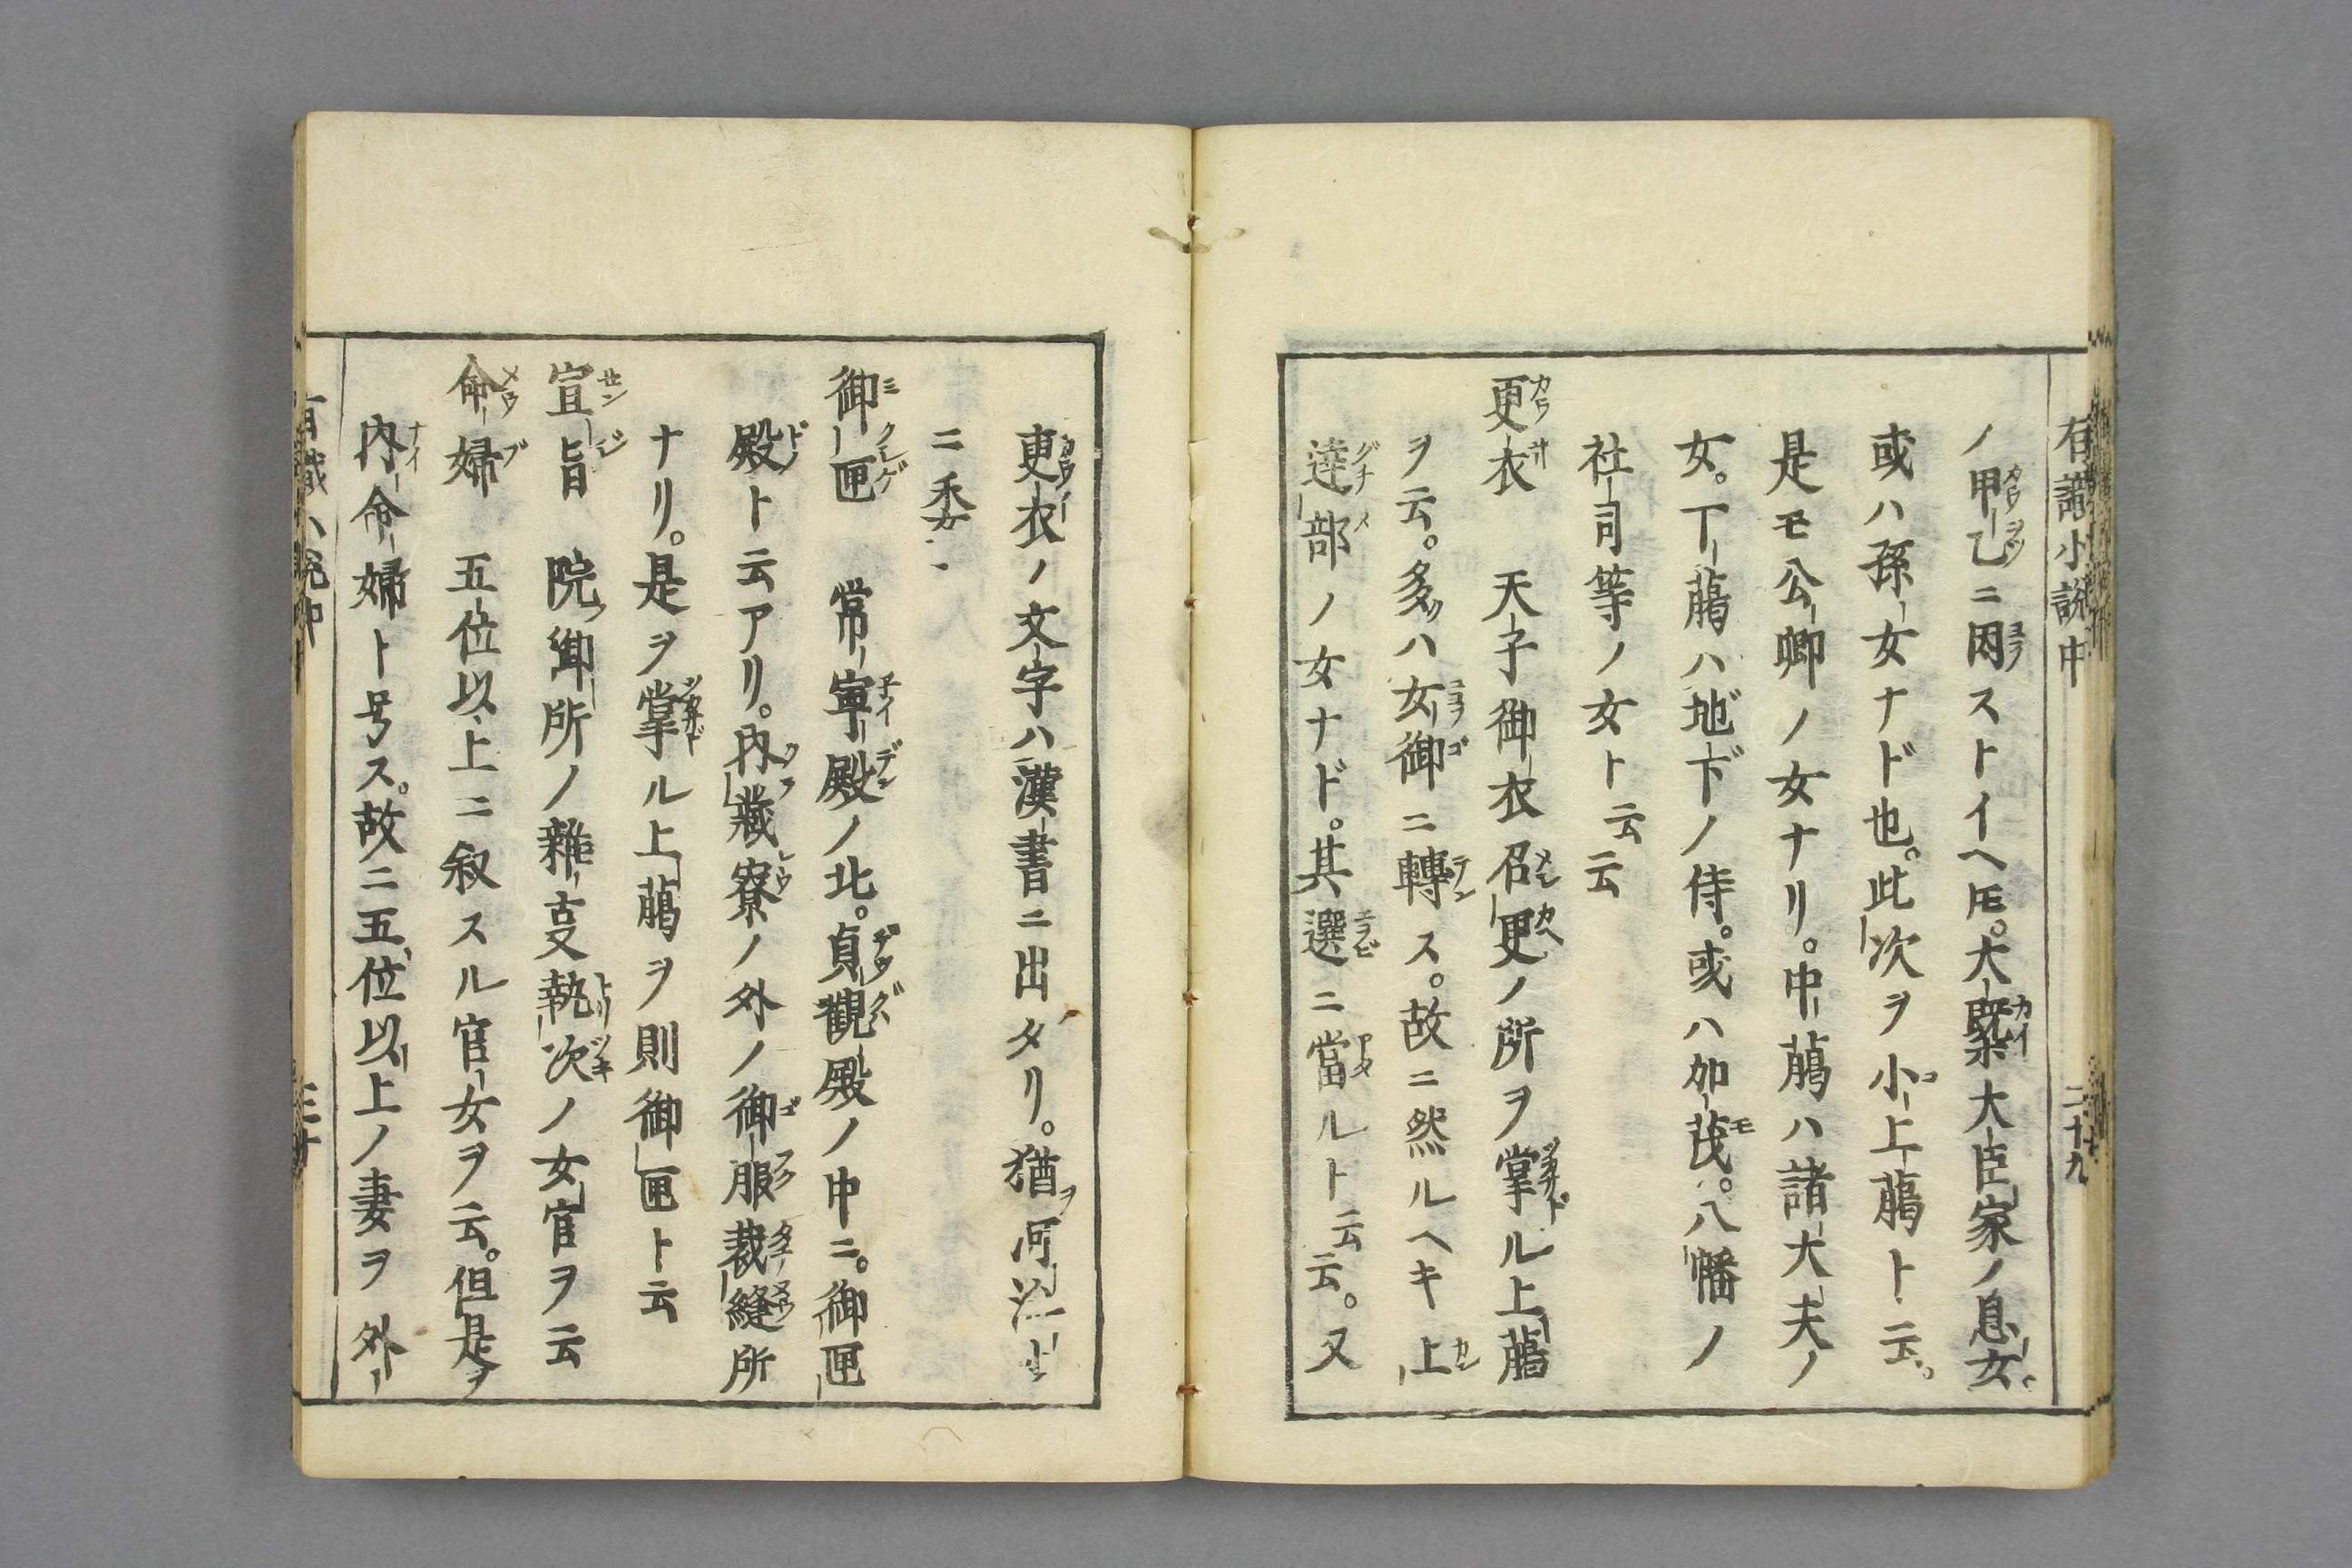 有識小說中 二十九
ノ甲乙ニ因ストイヘ𪜈。大槩大臣家ノ息女。
或ハ孫女ナド也。此次ヲ小上﨟ト云。
是モ公卿ノ女ナリ。中﨟ハ諸大夫ノ
女。下﨟ハ地下ノ侍。或ハ加茂。八幡ノ
社司等ノ女ト云云
更衣 天子御衣召更ノ所ヲ掌ル上﨟
ヲ云。多ハ女御ニ轉ス。故ニ然ルヘキ上
達部ノ女ナド。其選ニ當ルト云云。又
更衣ノ文字ハ漢書ニ出タリ。猶河海
ニ委
御匣 常寧殿ノ北。貞觀殿ノ中ニ。御匣
殿ト云アリ。內藏寮ノ外ノ御服裁縫所
ナリ。是ヲ掌ル上﨟ヲ則御匣ト云
宣旨 院御所ノ雜叓執次ノ女官ヲ云
命婦 五位以上ニ叙スル官女ヲ云。但是ヲ
內命婦ト号ス。故ニ五位以上ノ妻ヲ外
三十